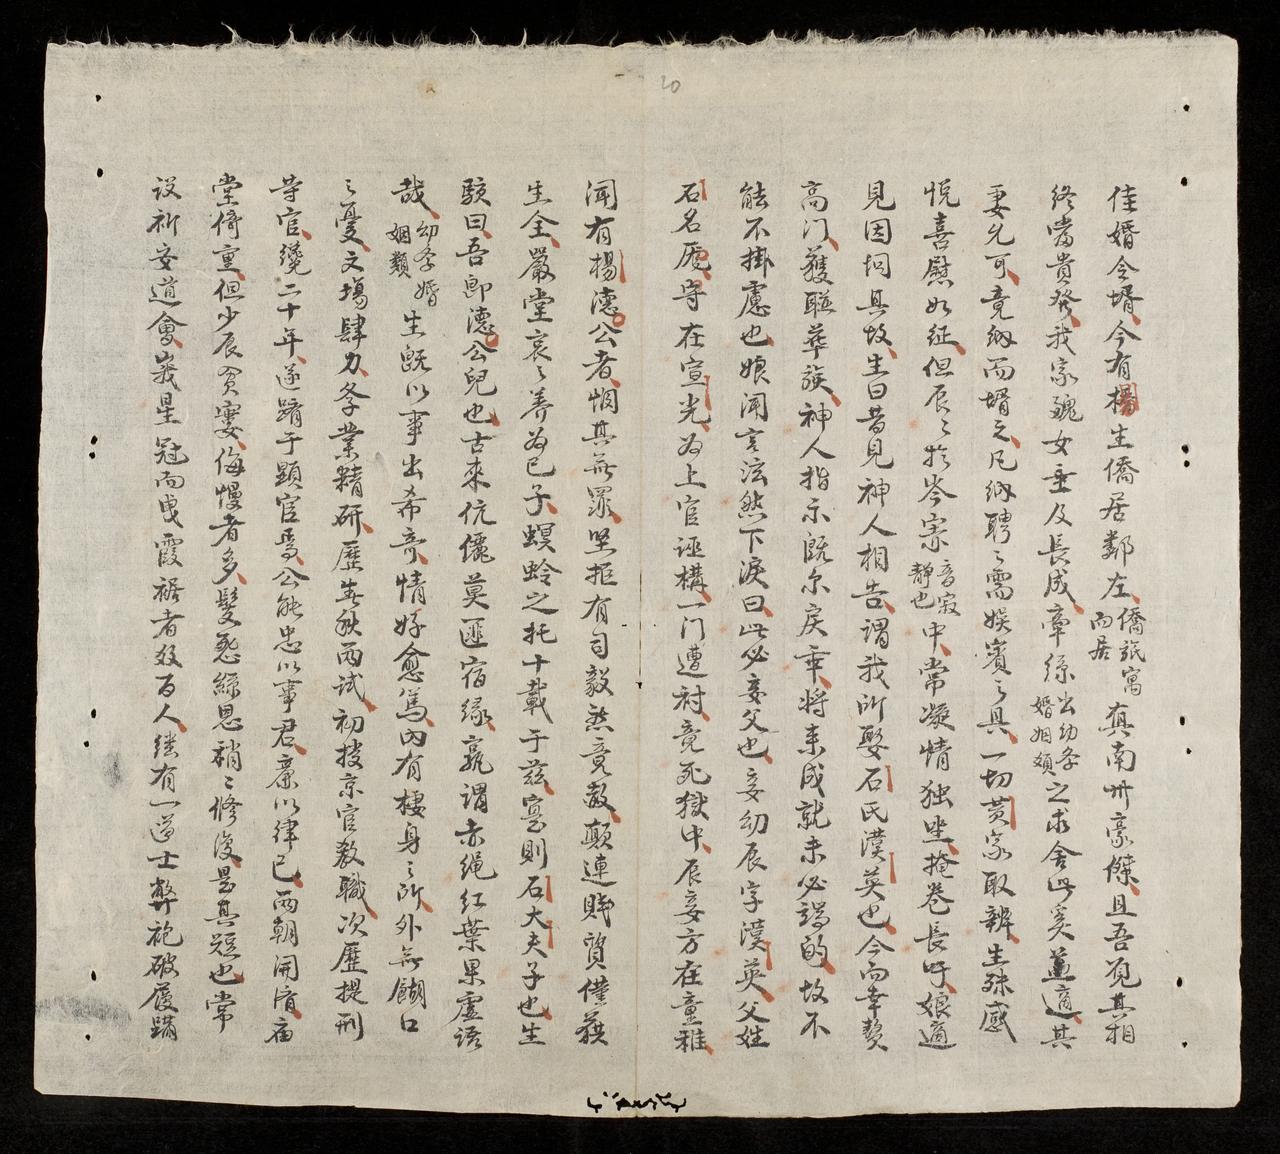 20
佳婚令壻今有楊生僑居鄰左僑詆寓而居真南州豪傑且吾覌其相
終當貴發我家醜女垂及長成牽絲出幼孝婚姻類之求舍此奚適其
妻允可竟納而壻之凡納聘之需娛賓之具一切黃家取辨生殊感
悅喜慰如紝但辰辰於岑寂音寂靜也中常凝情独坐掩卷長吁娘適
見因问其故生曰昔見神人相告謂我所娶石氏漢英也今而幸贅
高门獲聮華族神人指示既尔戾乖將来成就未必端的故不
能不掛慮也娘闻言泫然下淚曰此必妾父也妾幼辰字漢英父姓
石名厖守在宣光为上官诬構一门遭討竟死獄中辰妾方在童稚
闻有楊德公者悯其無罪坚拒有司毅然竟敖顛連賎質僅获
生全嚴堂哀哀养为己子螟蛉之托十載于兹寔則石大夫子也生
駭曰吾即德公兒也古來伉儷莫匪宿缘孰謂赤绳红葉果虚语
哉幼孝婚姻類生既以事出希竒情好愈篤內有棲身之所外無餬口
之憂文塲肆力冬業精研歷春秋两试初授京官教職次歷提刑
寺官纔二十年遂躋于顯官焉公能忠以事君廉以律己两朝開濟庙
堂倚重但少辰貧窶侮慢者多髮怨絲恩稍稍修復是其短也常
设祈安道會峩星冠而曳霞裾者数百人继有一道士弊袍破履蹣